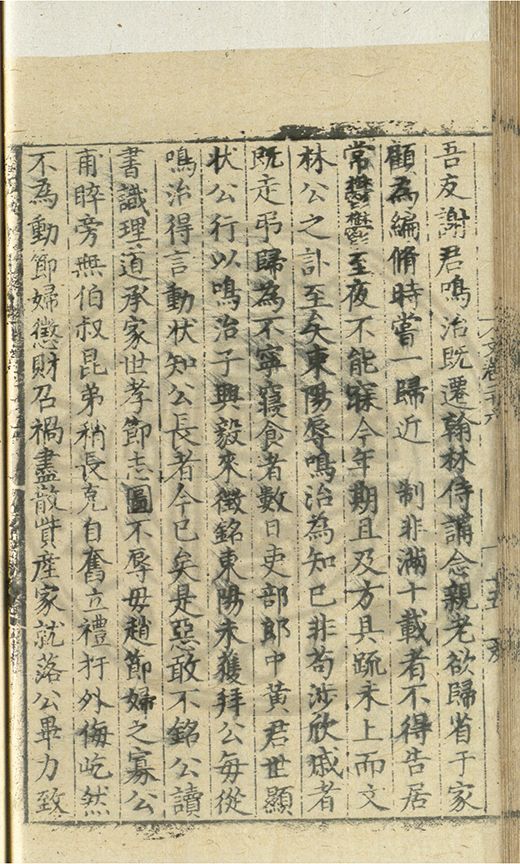 吾友謝君鳴治既遷翰林侍誦念親老欲歸省于家
顧為編脩時嘗一歸近　制非滿十載者不得告居
常鬱鬱至夜不能寐今年期且及方具䟽未上而文
林公之訃至矣東陽辱鳴治為知已非苟涉欣戚者
既走弔歸為不寧寢食者數日吏部郎中黃君世顯
狀公行以鳴治子興毅來徵銘東陽未獲拜公每從
鳴治得言動狀知公長者今已矣是惡敢不銘公讀
書識理道承家世孝節志圖不辱毋趙節婦之寡公
甫晬旁無伯叔昆弟稍長克自奮立禮扞外侮屹然
不為動節婦懲財召禍盡散貲産家就落公畢力致